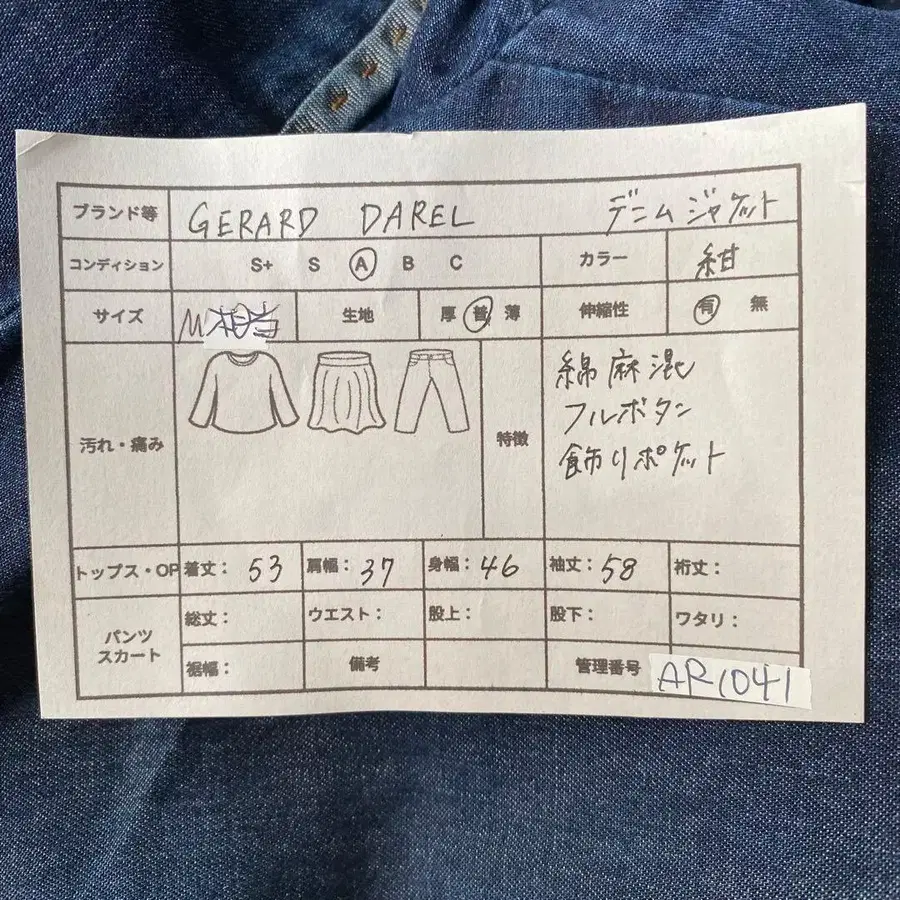 ブランド等 GERARD DAREL デニムジャケット
コンディション S+ S A B C カラー 紺
サイズ M相当 生地 厚 普 薄 伸縮性 有 無
汚れ・痛み 特徴 綿麻混
フルボタン
飾りポケット
トップス・OP 着丈：53 肩幅：37 身幅：46 袖丈：58 裄丈：
パンツ スカート 総丈： ウエスト： 股上： 股下： ワタリ：
裾幅： 備考 管理番号 AR1041